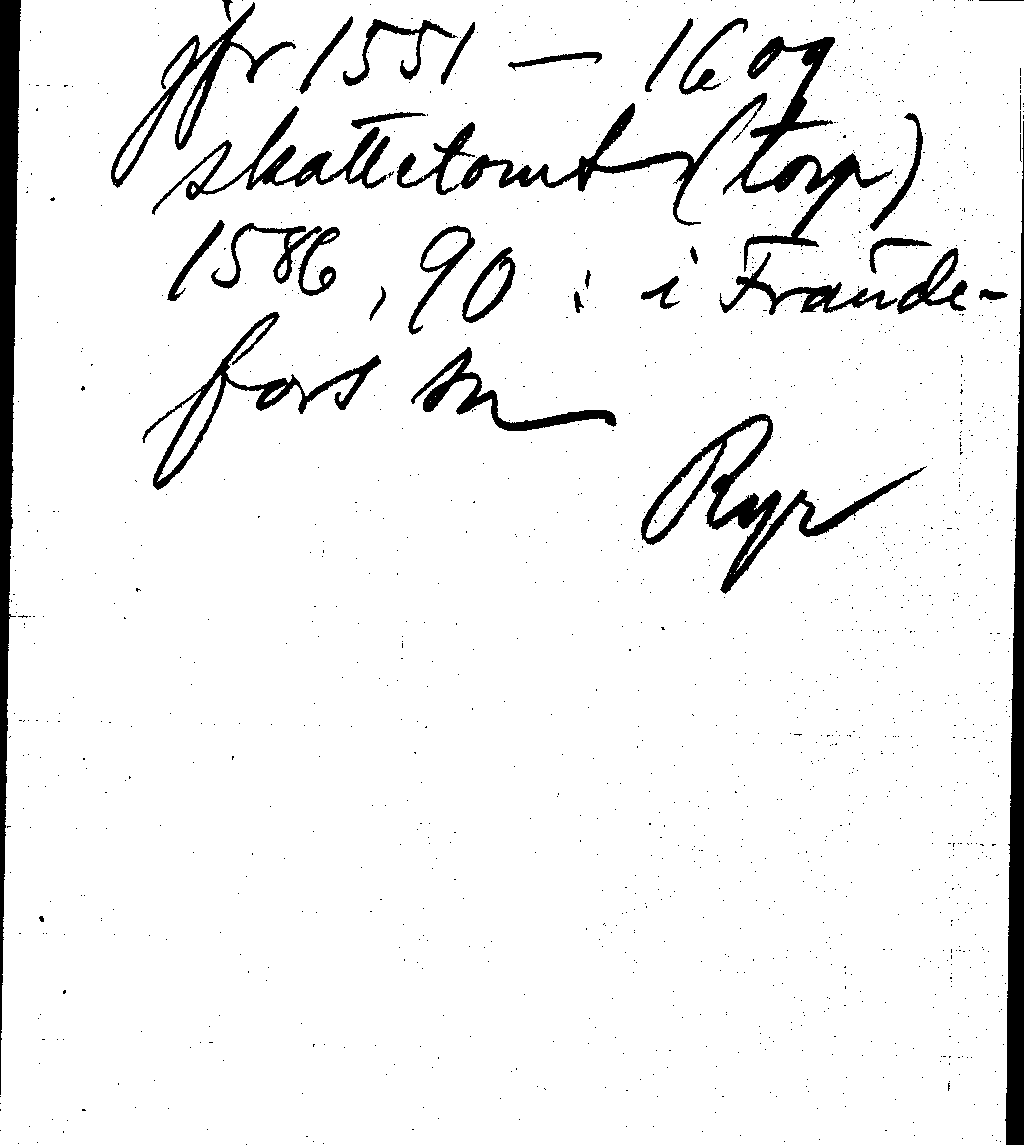 jfr 1551 — 1609
skattetomt (torp)
1586, 90 : i Frände-
fors sn
Ryr